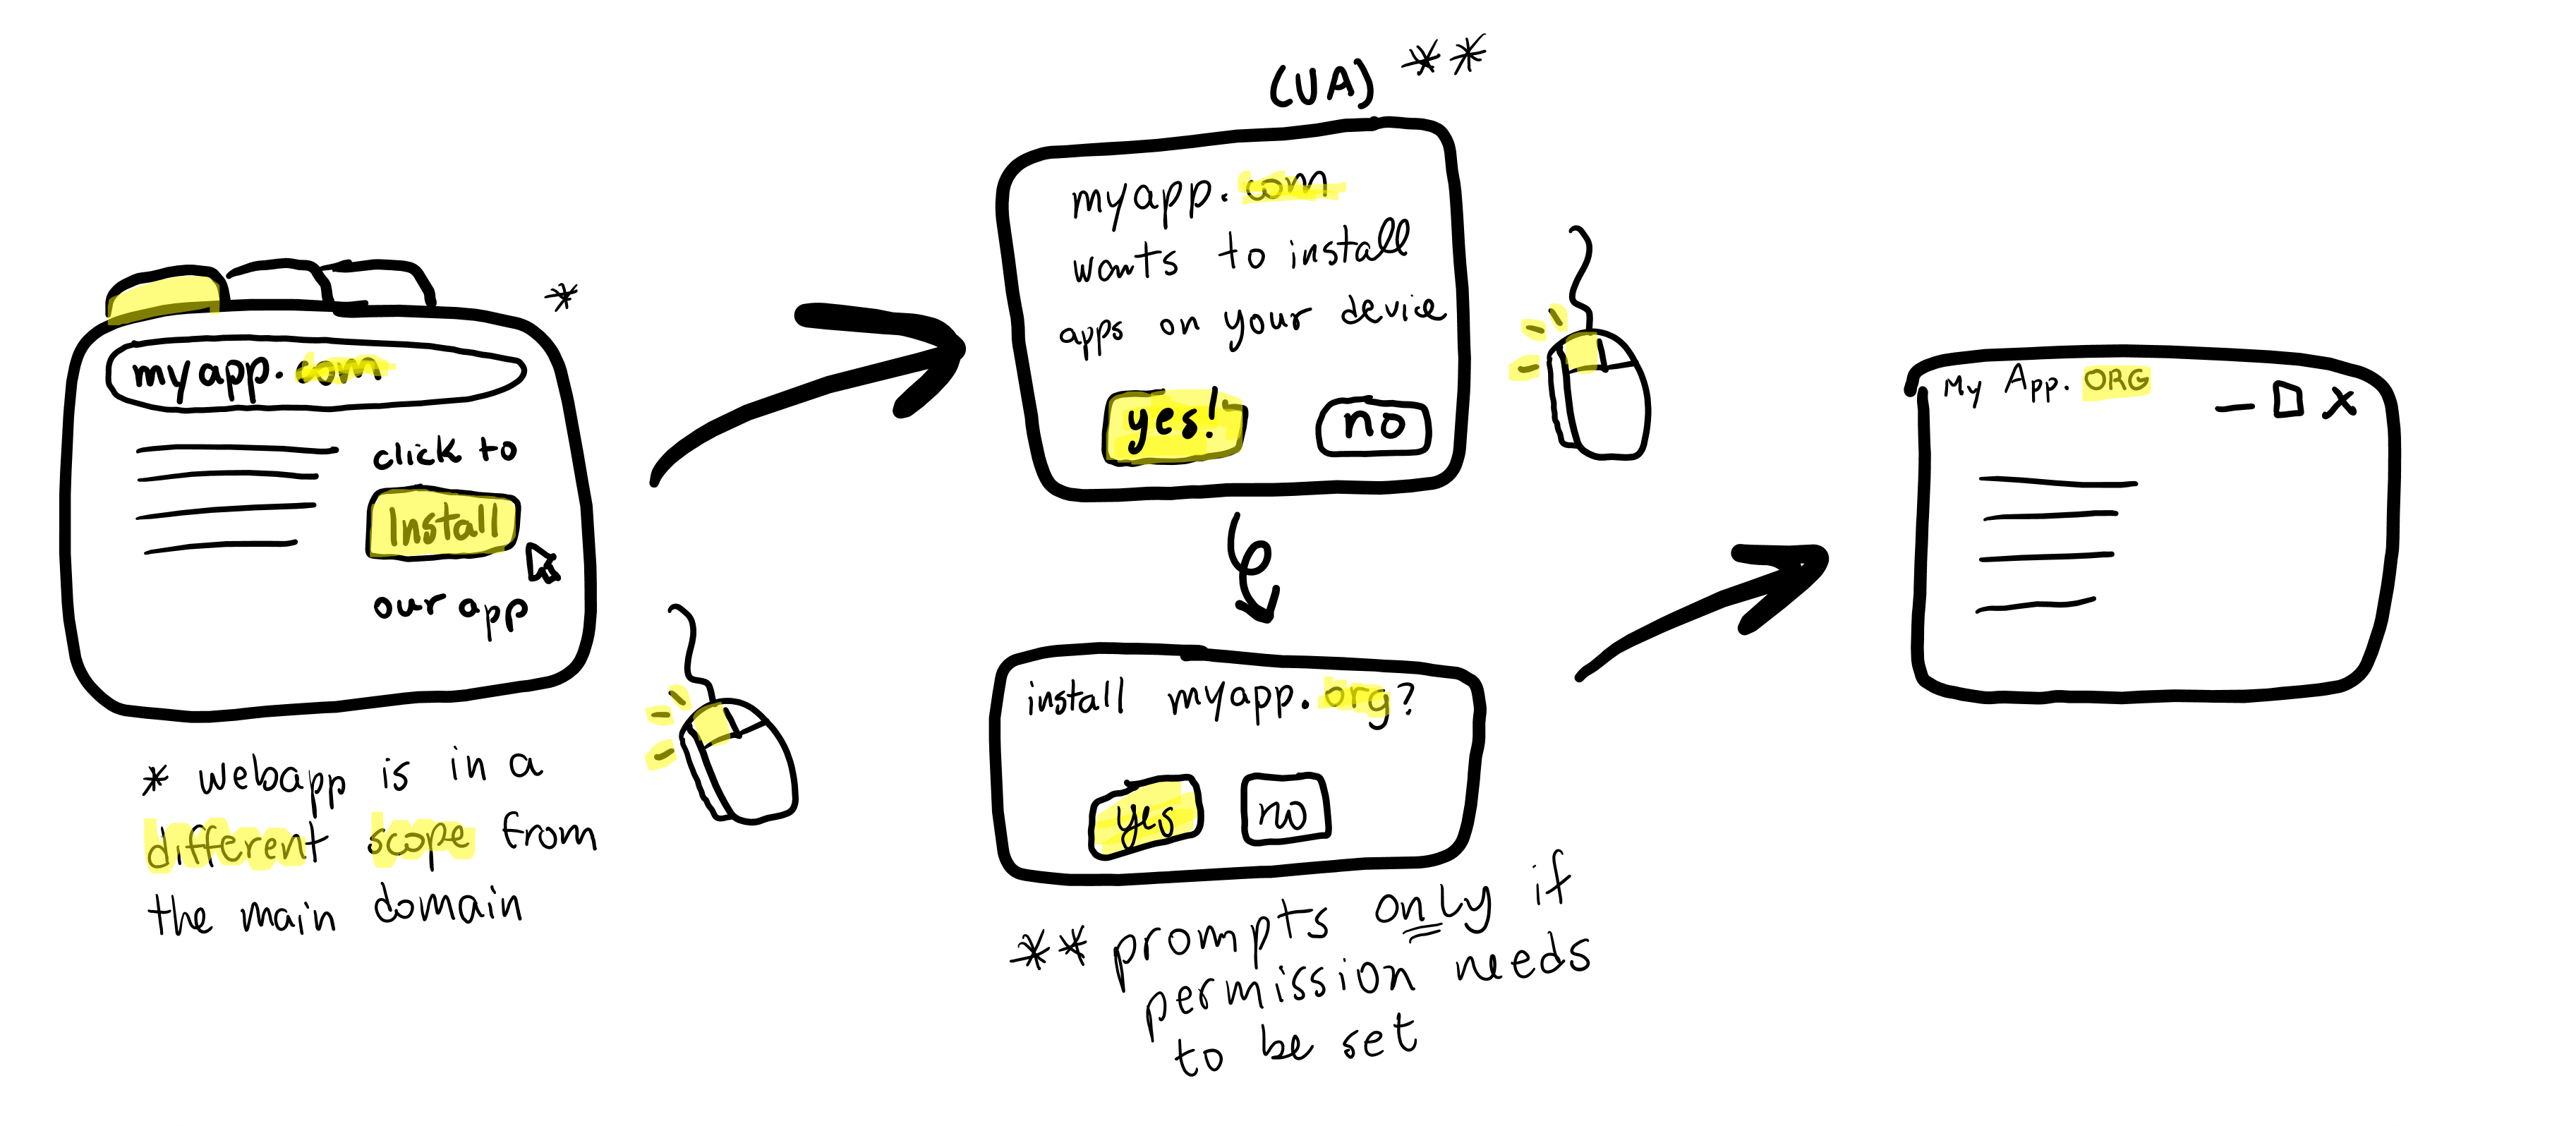 *
myapp.com
click to
Install
our app
* webapp is in a
different scope from
the main domain
(UA) **
myapp.com
wants to install
apps on your device
yes!
no
install myapp.org?
yes
no
** prompts only if
permission needs
to be set
My App. ORG